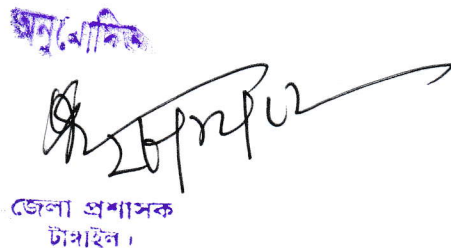 অনুমোদিত
জেলা প্রশাসক
টাঙ্গাইল।